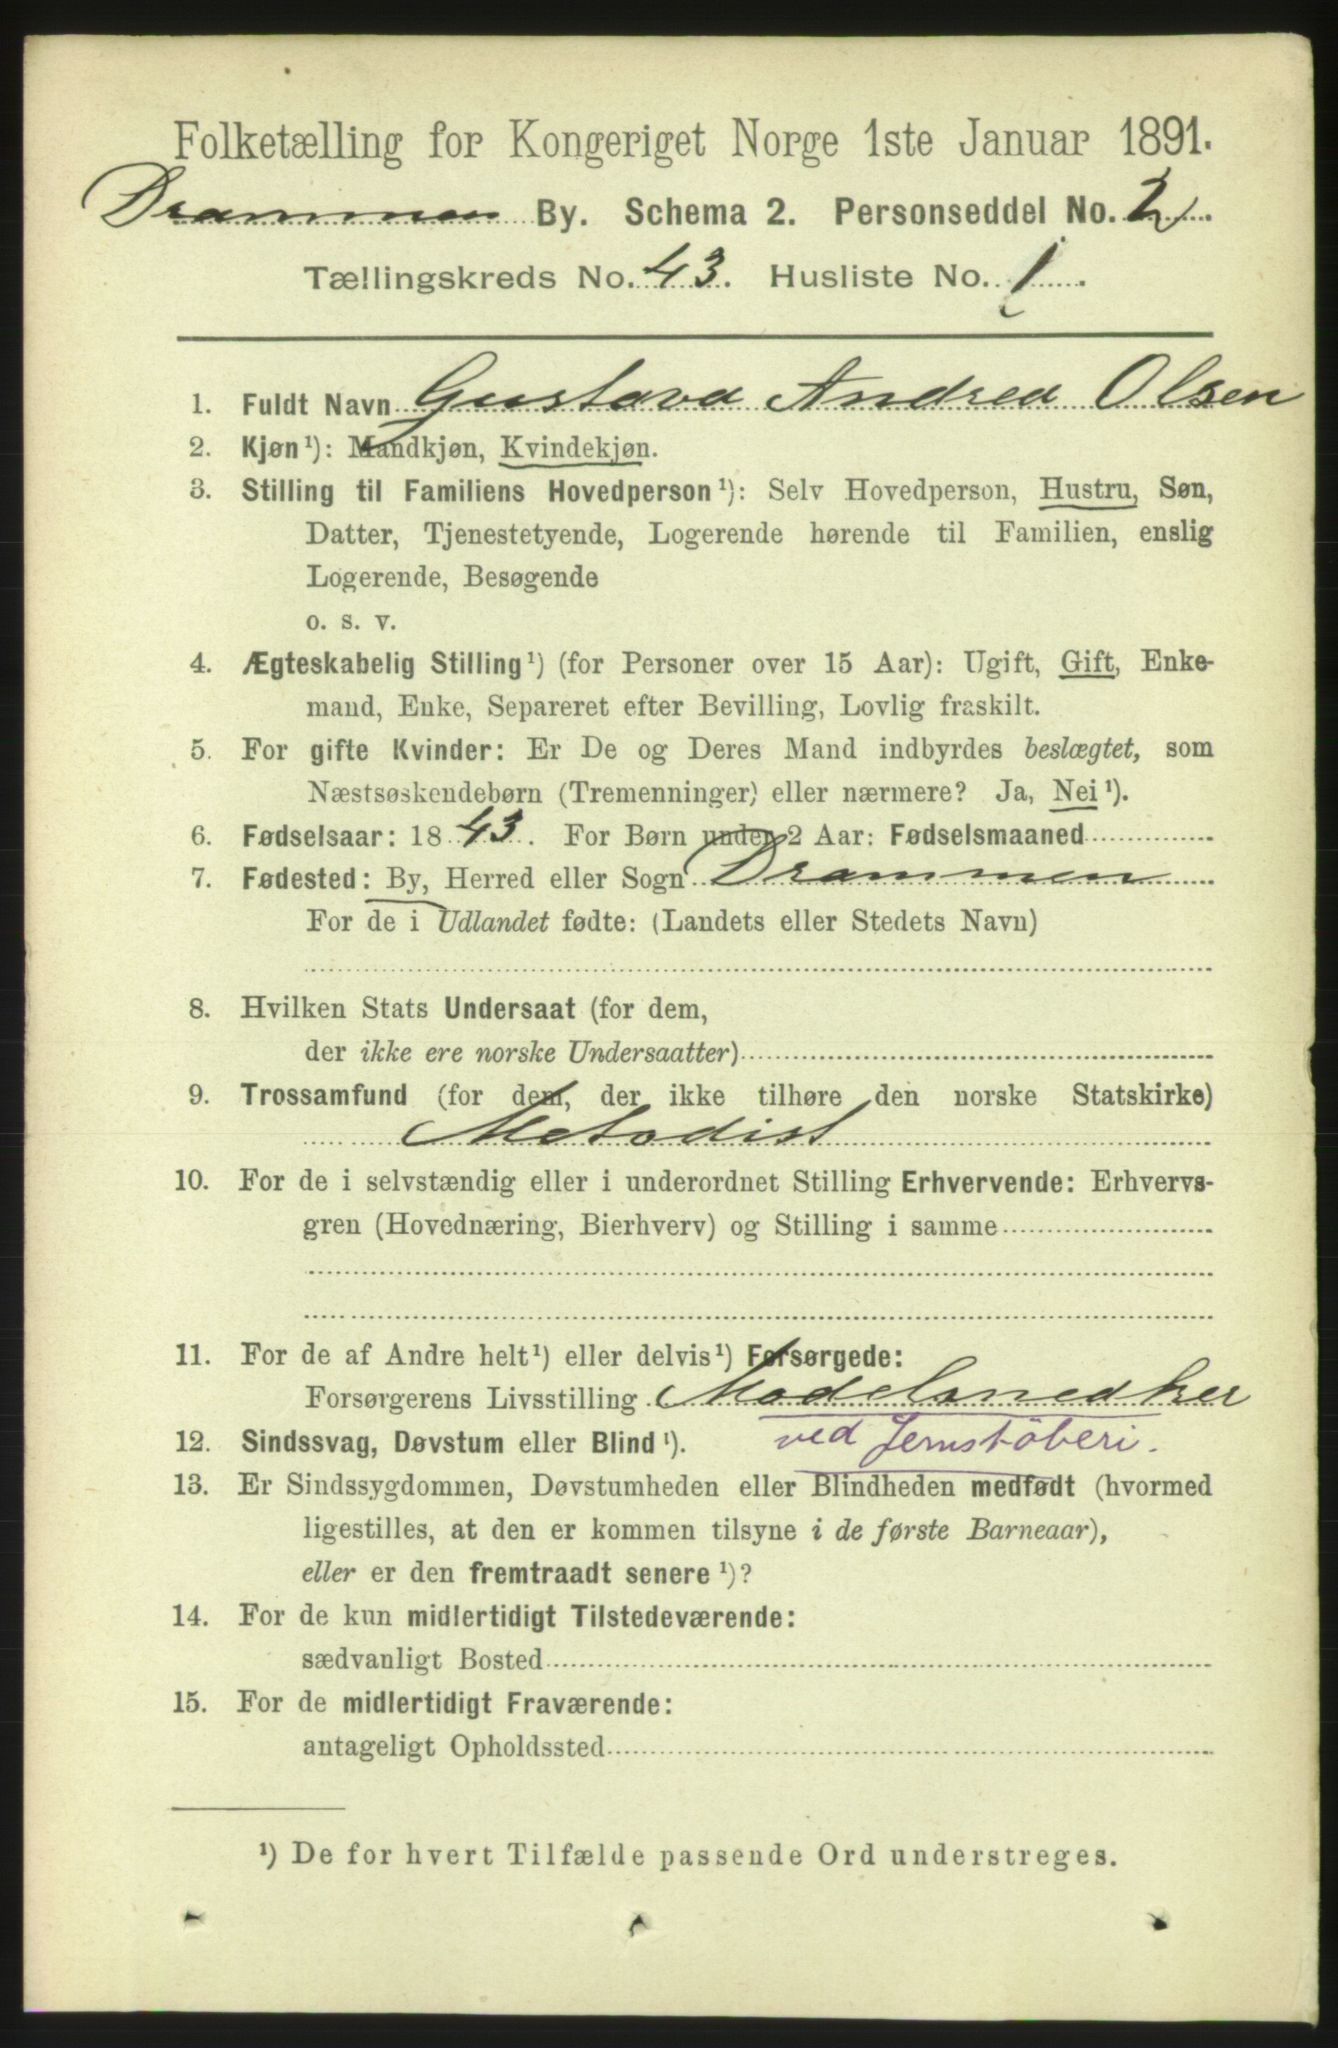 Folketælling for Kongeriget Norge 1ste Januar 1891.
Drammen By. Schema 2. Personseddel No. 2
Tællingskreds No. 43. Husliste No. 1.
1. Fuldt Navn Gustava Andrea Olsen
2. Kjøn ¹): Mandkjøn, Kvindekjøn.
3. Stilling til Familiens Hovedperson ¹): Selv Hovedperson, Hustru, Søn,
Datter, Tjenestetyende, Logerende hørende til Familien, enslig
Logerende, Besøgende
o. s. v.
4. Ægteskabelig Stilling ¹) (for Personer over 15 Aar): Ugift, Gift, Enke-
mand, Enke, Separeret efter Bevilling, Lovlig fraskilt.
5. For gifte Kvinder: Er De og Deres Mand indbyrdes beslægtet, som
Næstsøskendebørn (Tremenninger) eller nærmere? Ja, Nei ¹).
6. Fødselsaar: 1843. For Børn under 2 Aar: Fødselsmaaned
7. Fødested: By, Herred eller Sogn Drammen
For de i Udlandet fødte: (Landets eller Stedets Navn)
8. Hvilken Stats Undersaat (for dem,
der ikke ere norske Undersaatter)
9. Trossamfund (for dem, der ikke tilhøre den norske Statskirke)
Metodist
10. For de i selvstændig eller i underordnet Stilling Erhvervende: Erhvervs-
gren (Hovednæring, Bierhverv) og Stilling i samme
11. For de af Andre helt ¹) eller delvis ¹) Forsørgede:
Forsørgerens Livsstilling Modelsnedker
12. Sindssvag, Døvstum eller Blind ¹). ved Jernstöberi.
13. Er Sindssygdommen, Døvstumheden eller Blindheden medfødt (hvormed
ligestilles, at den er kommen tilsyne i de første Barneaar),
eller er den fremtraadt senere ¹)?
14. For de kun midlertidigt Tilstedeværende:
sædvanligt Bosted
15. For de midlertidigt Fraværende:
antageligt Opholdssted
¹) De for hvert Tilfælde passende Ord understreges.